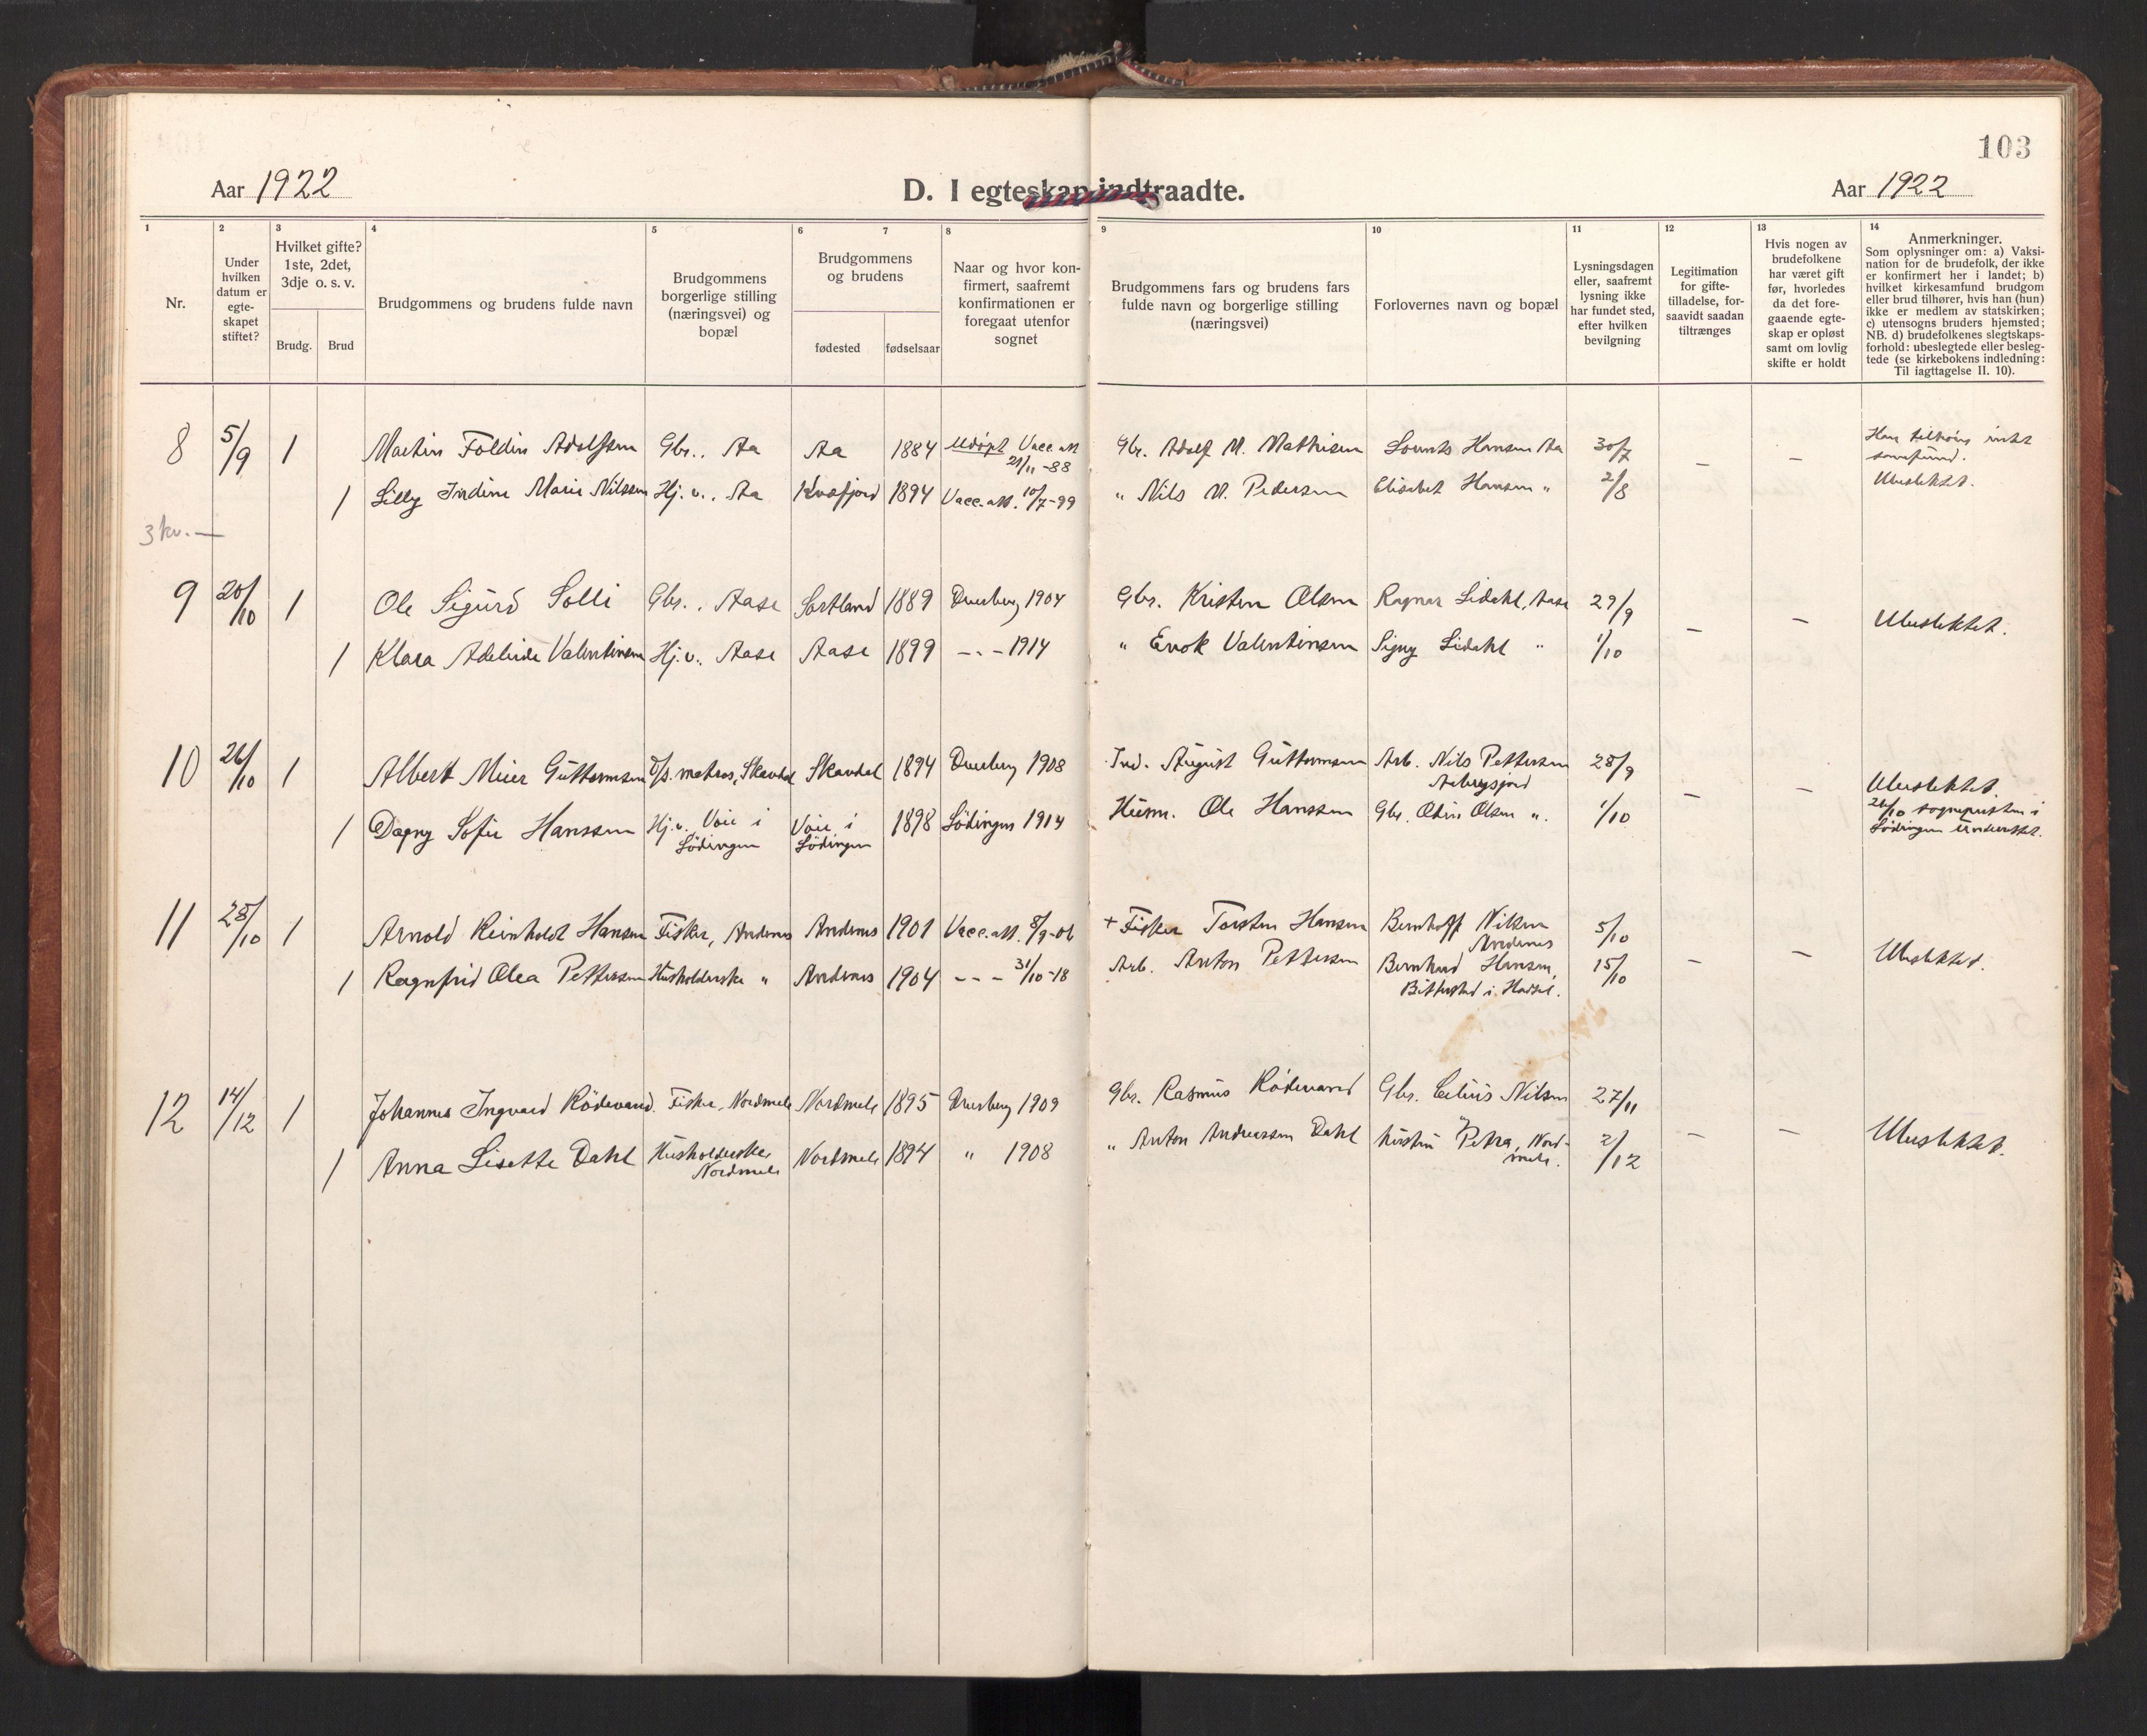 103
Aar 1922
D. I egteskap indtraadte.
Aar 1922
1 2 3 4 5 6 7 8 9 10 11 12 13 14
Nr.
Under hvilken datum er egteskapet stiftet?
Hvilket gifte? 1ste, 2det, 3dje o. s. v.
Brudg. Brud
Brudgommens og brudens fulde navn
Brudgommens borgerlige stilling (næringsvei) og bopæl
Brudgommens og brudens
fødested fødselsaar
Naar og hvor konfirmert, saafremt konfirmationen er foregaat utenfor sognet
Brudgommens fars og brudens fars fulde navn og borgerlige stilling (næringsvei)
Forlovernes navn og bopæl
Lysningsdagen eller, saafremt lysning ikke har fundet sted, efter hvilken bevilgning
Legitimation for giftetilladelse, forsaavidt saadan tiltrænges
Hvis nogen av brudefolkene har været gift før, hvorledes da det foregaaende egteskap er opløst samt om lovlig skifte er holdt
Anmerkninger.
Som oplysninger om: a) Vaksination for de brudefolk, der ikke er konfirmert her i landet; b) hvilket kirkesamfund brudgom eller brud tilhører, hvis han (hun) ikke er medlem av statskirken; c) utensogns bruders hjemsted; NB. d) brudefolkenes slegtskapsforhold: ubeslegtede eller beslegtede (se kirkebokens indledning: Til iagttagelse II. 10).
8 5/9 1 Martin Foldin Adolfsen Gbr., Aa Aa 1884 Udöpt Vacc. att 21/11-88 Gbr. Adolf M. Mathisen Lorents Hansen Aa 30/7 — — Han tilhører intet samfund.
1 Lilly Indine Marie Nilssen Hj.v., Aa Kvæfjord 1894 Vacc. att. 10/7-99 " Nils M. Pedersen Elisabet Hansen " 2/8 Ubeslektet.
3 kv. —
9 20/10 1 Ole Sigurd Solli Gbr., Aase Sortland 1889 Dverberg 1904 Gbr. Kristen Olsen Ragnar Lidahl, Aase 29/9 — — Ubeslektet.
1 Klara Adelinde Valentinsen Hj.v., Aase Aase 1899 - - - 1914 " Enok Valentinsen Signy Lidahl " 1/10
10 26/10 1 Albert Meier Guttormsen D/s. matros, Skavdal Skavdal 1894 Dverberg 1908 Ind. August Guttormsen Arb. Nils Pettersen 28/9 — — Ubeslektet.
1 Dagny Sofie Hanssen Hj.v. Voie i Lödingen Voie i Lödingen 1898 Lödingen 1914 Husm. Ole Hanssen Gbr. Odin Olsen ". 1/10 26/10 sognepresten i Lödingen underrettet.
11 28/10 1 Arnold Reinholdt Hansen Fisker, Andenes Andenes 1901 Vacc. att. 8/9-06 + Fisker Torsten Hansen Bernhoff Nilsen Andenes 5/10 — — Ubeslektet.
1 Ragnfrid Olea Pettersen Husholderske " Andenes 1904 - - - 31/10-18 Arb. Anton Pettersen Bernhard Hansen, Bitterstad i Hadsel. 15/10
12 14/12 1 Johannes Ingvard Rödevand. Fisker, Nordmele Nordmele 1895 Dverberg 1909 Gbr. Rasmus Rödevand Gbr. Celius Nilsen 27/11 — — Ubeslektet.
1 Anna Lisette Dahl Husholderske Nordmele Nordmele 1894 " 1908 " Anton Andreassen Dahl hustru Petra, Nordmele. 2/12